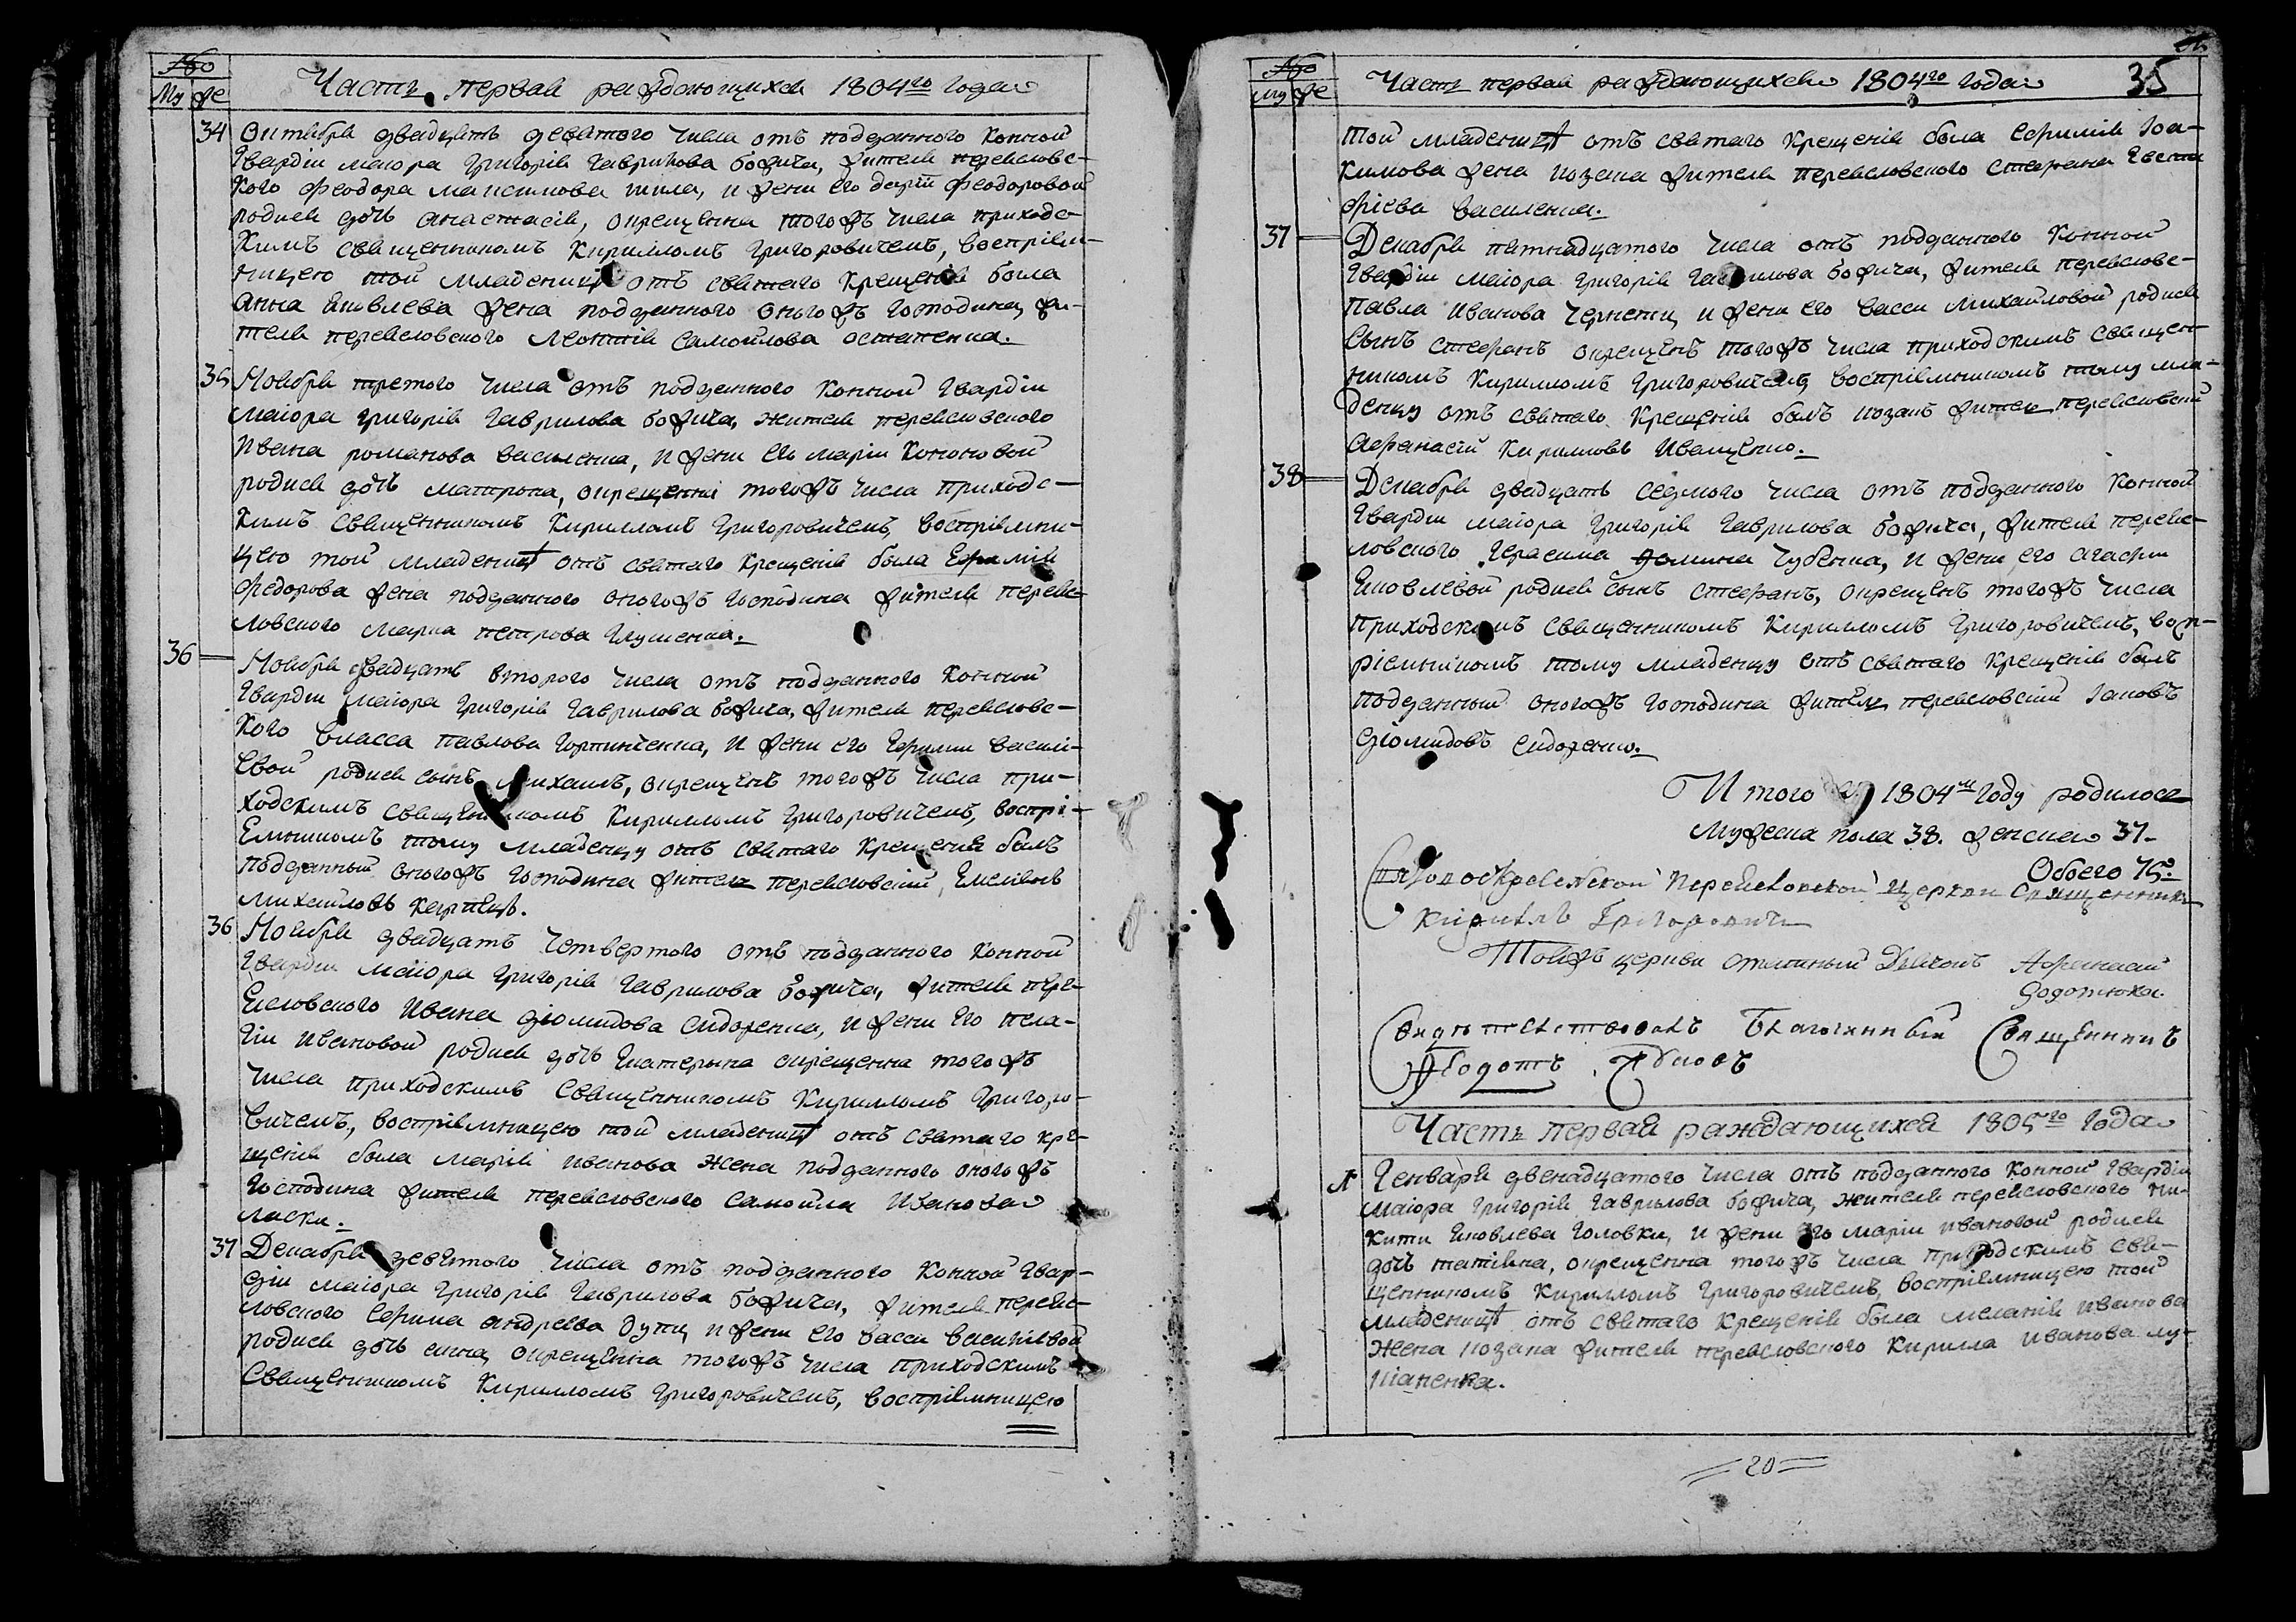 Число
Му же
Часть первая раждающихся 1804го года
34 Октября двадцать девятого числа отъ подданного конной
Гвардіи маіора Григорія Гаврилова Божича, жителя переясловс-
кого Феодора Максимова жила, и жены его Даріи Феодоровой
родися дочь Анастасія, окрещенна тогожъ числа приходс-
кимъ священникомъ Кирилломъ Григоровичемъ, воспріем-
ницею той младеницѣ отъ святаго крещенія была
Анна Яковлева жена подданного оногожъ господина, жи-
теля переясловского Леонтія Самойлова Остапенка.
35 Ноября третого числа отъ подданного конной Гвардіи
Маіора Григорія Гаврилова Божича, жителя переясловского
Ивана Романова Василенка, и жены его Маріи Кононовой
родися дочь Матрона, окрещенна тогожъ числа приходс-
кимъ священникомъ Кирилломъ Григоровичемъ, воспріемни-
цею той младеницѣ отъ святаго крещенія была Ефимія
Федорова жена подданного оногожъ господина жителя переяс-
ловского Марка Петрова Глушенка.
36 Ноября двадцать второго числа отъ подданного конной
Гвардіи маіора Григорія Гаврилова Божича, жителя переясловс-
кого Власса Павлова Горпинченка, и жены его Евфиміи Василі-
евой родися сынъ Михаилъ, окрещенъ тогожъ числа при-
ходскимъ священникомъ Кирилломъ Григоровичемъ, воспрі-
емникомъ тому младенцу отъ святаго крещенія былъ
подданный оногожъ господина житель переясловскій, Емеліанъ
Михайловъ
36 Ноября двадцать четвертого отъ подданного конной
Гвардіи маіора Григорія Гаврилова Божича, жителя пере-
ясловского Ивана Діомидова Сидоренка, и жены его Пела-
гіи Ивановой родися дочь Екатерина окрещенна тогожъ
числа приходскимъ священникомъ Кирилломъ Григоро-
вичемъ, воспріемницею той младеницѣ отъ святаго кре-
щенія была Марія Иванова жена подданного оногожъ
господина жителя переясловского Самойла Иванова
Ласки.
37 Декабря девятого числа отъ подданного конной Гвар-
діи маіора Григорія Гаврилова Божича, жителя переяс-
ловского Ефима Андреева и жены его Васси Василіевой
родися дочь Анна, окрещенна тогожъ числа приходскимъ
священникомъ Кирилломъ Григоровичемъ, воспріемницею
Число
Му же
Часть первая раждающихся 1804го года 35
той младеницѣ отъ святаго крещенія была Ефимія Іоа-
кимова жена козака жителя переясловского Стефана Евста-
фіева Василенка.
37 Декабря пятнадцатого числа отъ подданного конной
Гвардіи маіора Григорія Гаврилова Божича, жителя переясловс-
Павла Иванова Чернети, и жены его Васси Михайловой родися
сынъ Стефанъ окрещенъ тогожъ числа приходскимъ священ-
никомъ Кирилломъ Григоровичемъ, воспріемникомъ тому мла-
денцу отъ святаго крещенія былъ козакъ житель переясловскій
Афанасій Кирилловъ Иващенко.
38 Декабря двадцать седмого числа отъ подданного конной
Гвардіи маіора Григорія Гаврилова Божича, жителя переяс-
ловского Герасима Демина Чубенка, и жены его Агафіи
Яковлевой родися сынъ Стефанъ, окрещенъ тогожъ числа
приходскимъ священникомъ Кирилломъ Григоровичемъ, восп-
ріемникомъ тому младенцу отъ святаго крещенія былъ
подданный оногожъ господина житель переясловскій Іаковъ
Діомидовъ Сидоренко.
Итого въ 1804м году родилося
мужеска пола 38. женска 37.
Обоего 75.
переясловской церкви священникъ
Кирилъ Григоровичъ
Тойжъ церкви дьячокъ Афанасій
Свидѣтельствовалъ Благочинный Священникъ
Феодотъ
Часть первая раждающихся 1805го года
1 Генваря двенадцатого числа отъ подданного конной Гвардіи
маіора Григорія Гаврилова Божича, жителя переясловского Ни-
киты Яковлева Головки, и жены его Маріи Ивановой родися
дочь Татіана, окрещенна тогожъ числа приходскимъ свя-
щенникомъ Кирилломъ Григоровичемъ, воспріемницею той
младеницѣ отъ святаго крещенія была Меланія Иванова
жена козака жителя переясловского Кирилла Иванова Лу-
кіаненка.
20